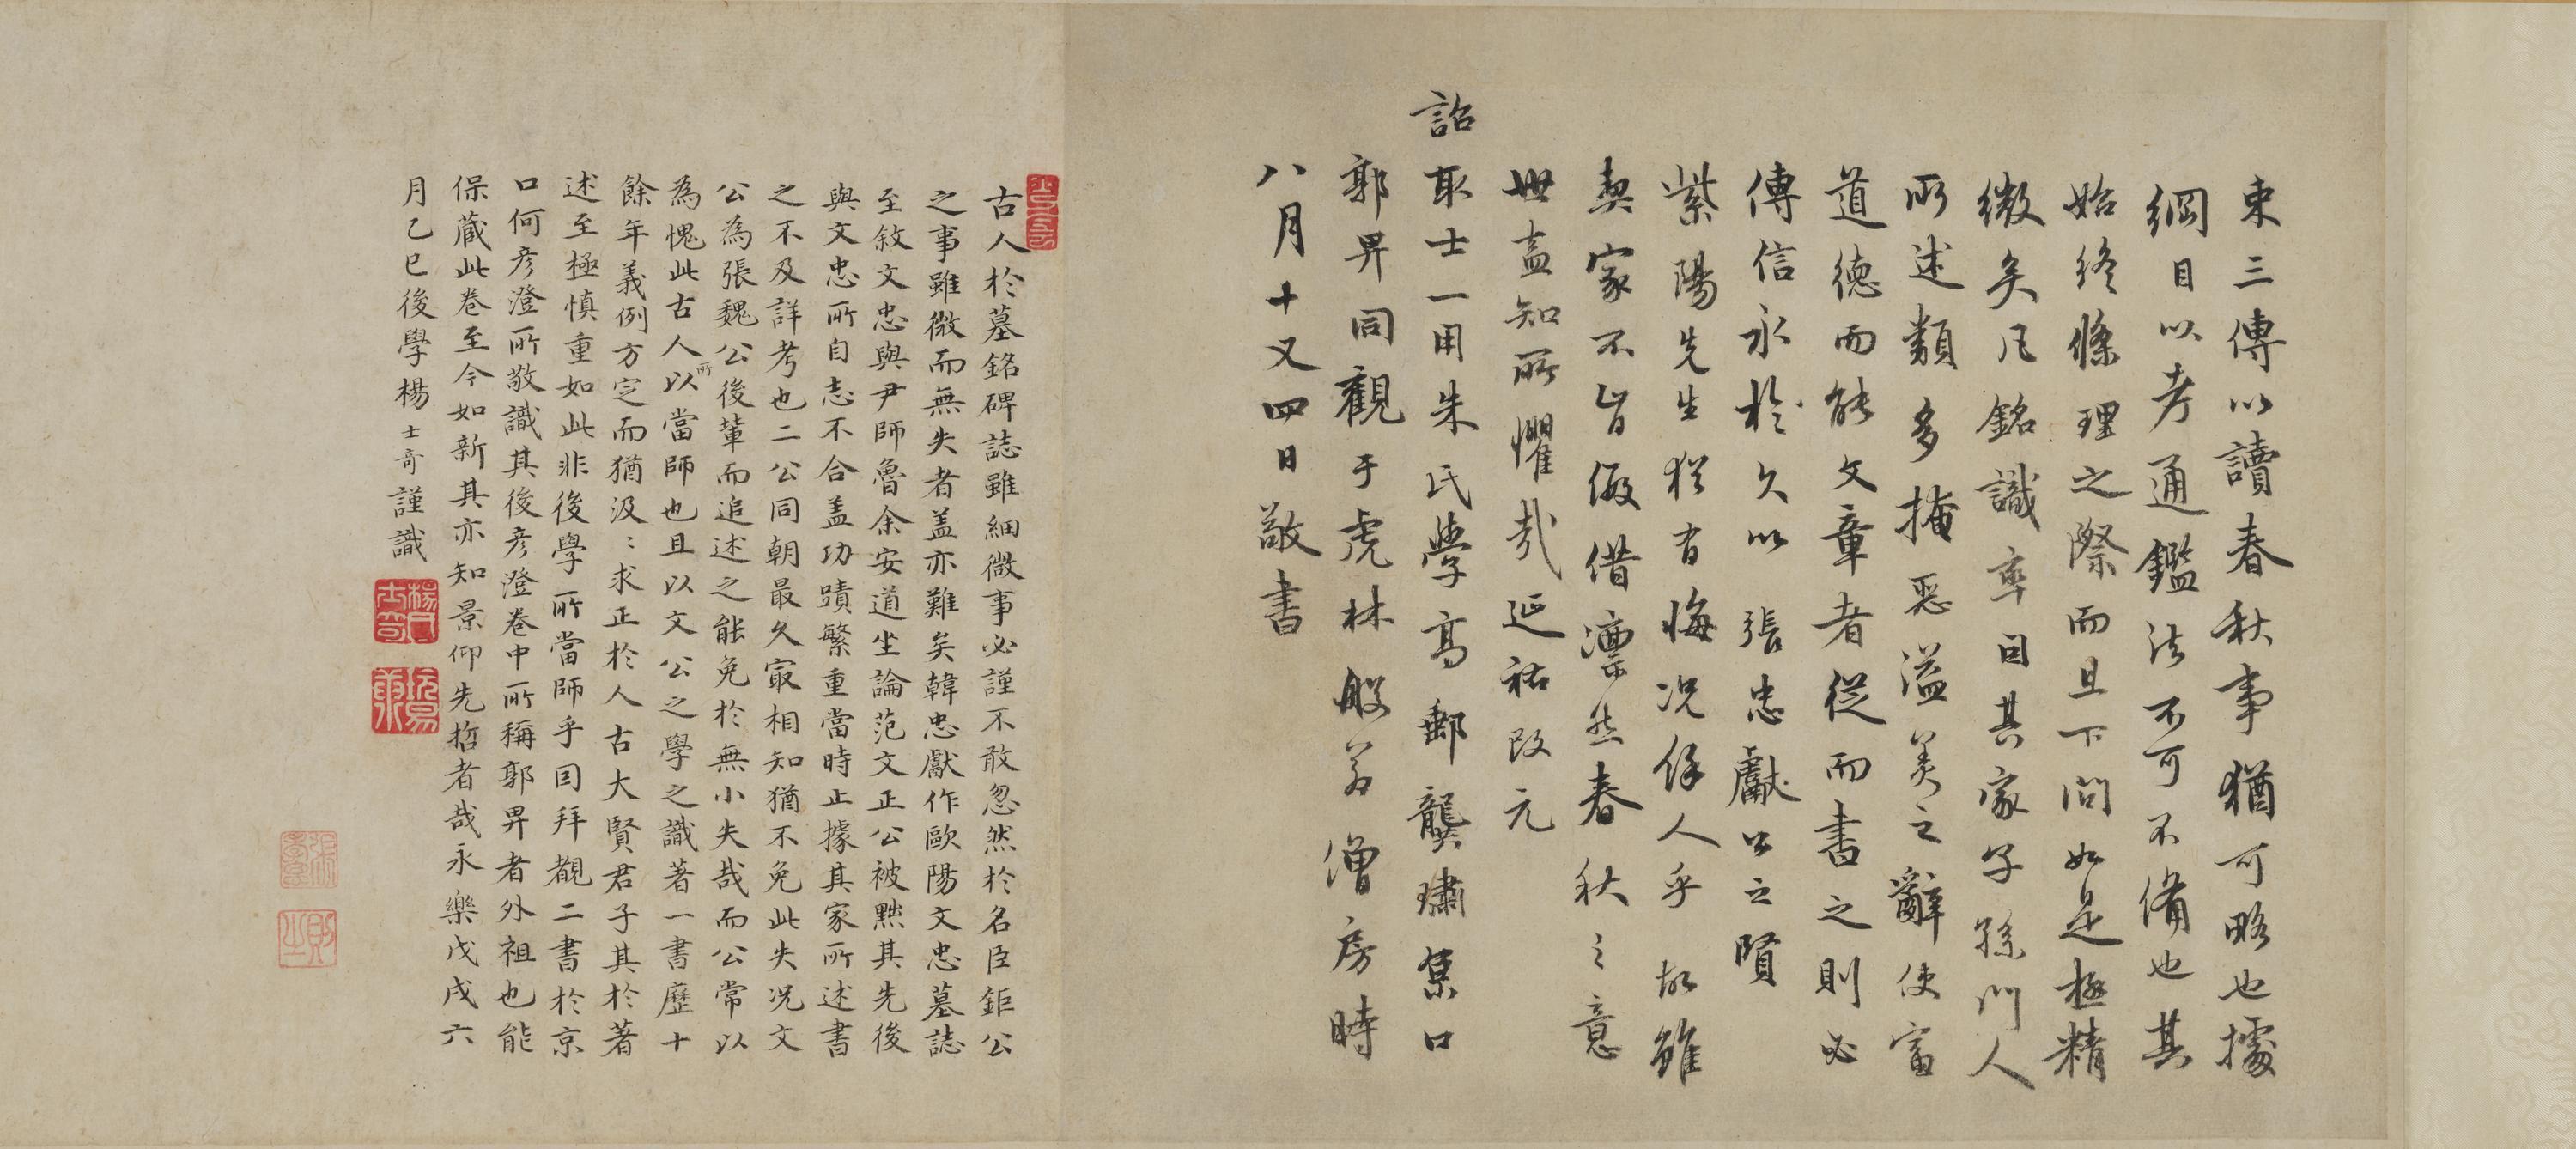 束三傳以讀春秋事猶可略也據
綱目以考通鑑法不可不備也其
始終條理之際而且下問如是極精
微矣凡銘識率因其家子孫門人
所述類多掩惡溢美之辭使富
道德而能文章者從而書之則必
傳信永於久以張忠獻公之賢
紫陽先生猶有悔况餘人乎故雖
契家不肯假借凛然春秋之意
世盖知所懼哉延祐改元
詔取士一用朱氏學高郵龔璛集口
郭畀同觀于虎林般若僧房時
八月十又四日敬書
古人於墓銘碑誌雖細微事必謹不敢忽然於名臣鉅公
之事雖微而無失者盖亦難矣韓忠獻作歐陽文忠墓誌
至敘文忠與尹師魯余安道坐論范文正公被黜其先後
與文忠所自志不合盖功蹟繁重當時止據其家所述書
之不及詳考也二公同朝最久㝡相知猶不免此失况文
公為張魏公後輩而追述之能免於無小失哉而公常以
為愧此古人所以當師也且以文公之學之識著一書歷十
餘年義例方定而猶汲〻求正於人古大賢君子其於著
述至極慎重如此非後學所當師乎因拜觀二書於京
口何彦澄所敬識其後彦澄卷中所稱郭畀者外祖也能
保藏此卷至今如新其亦知景仰先哲者哉永樂戊戌六
月乙巳後學楊士奇謹識
楊士奇印